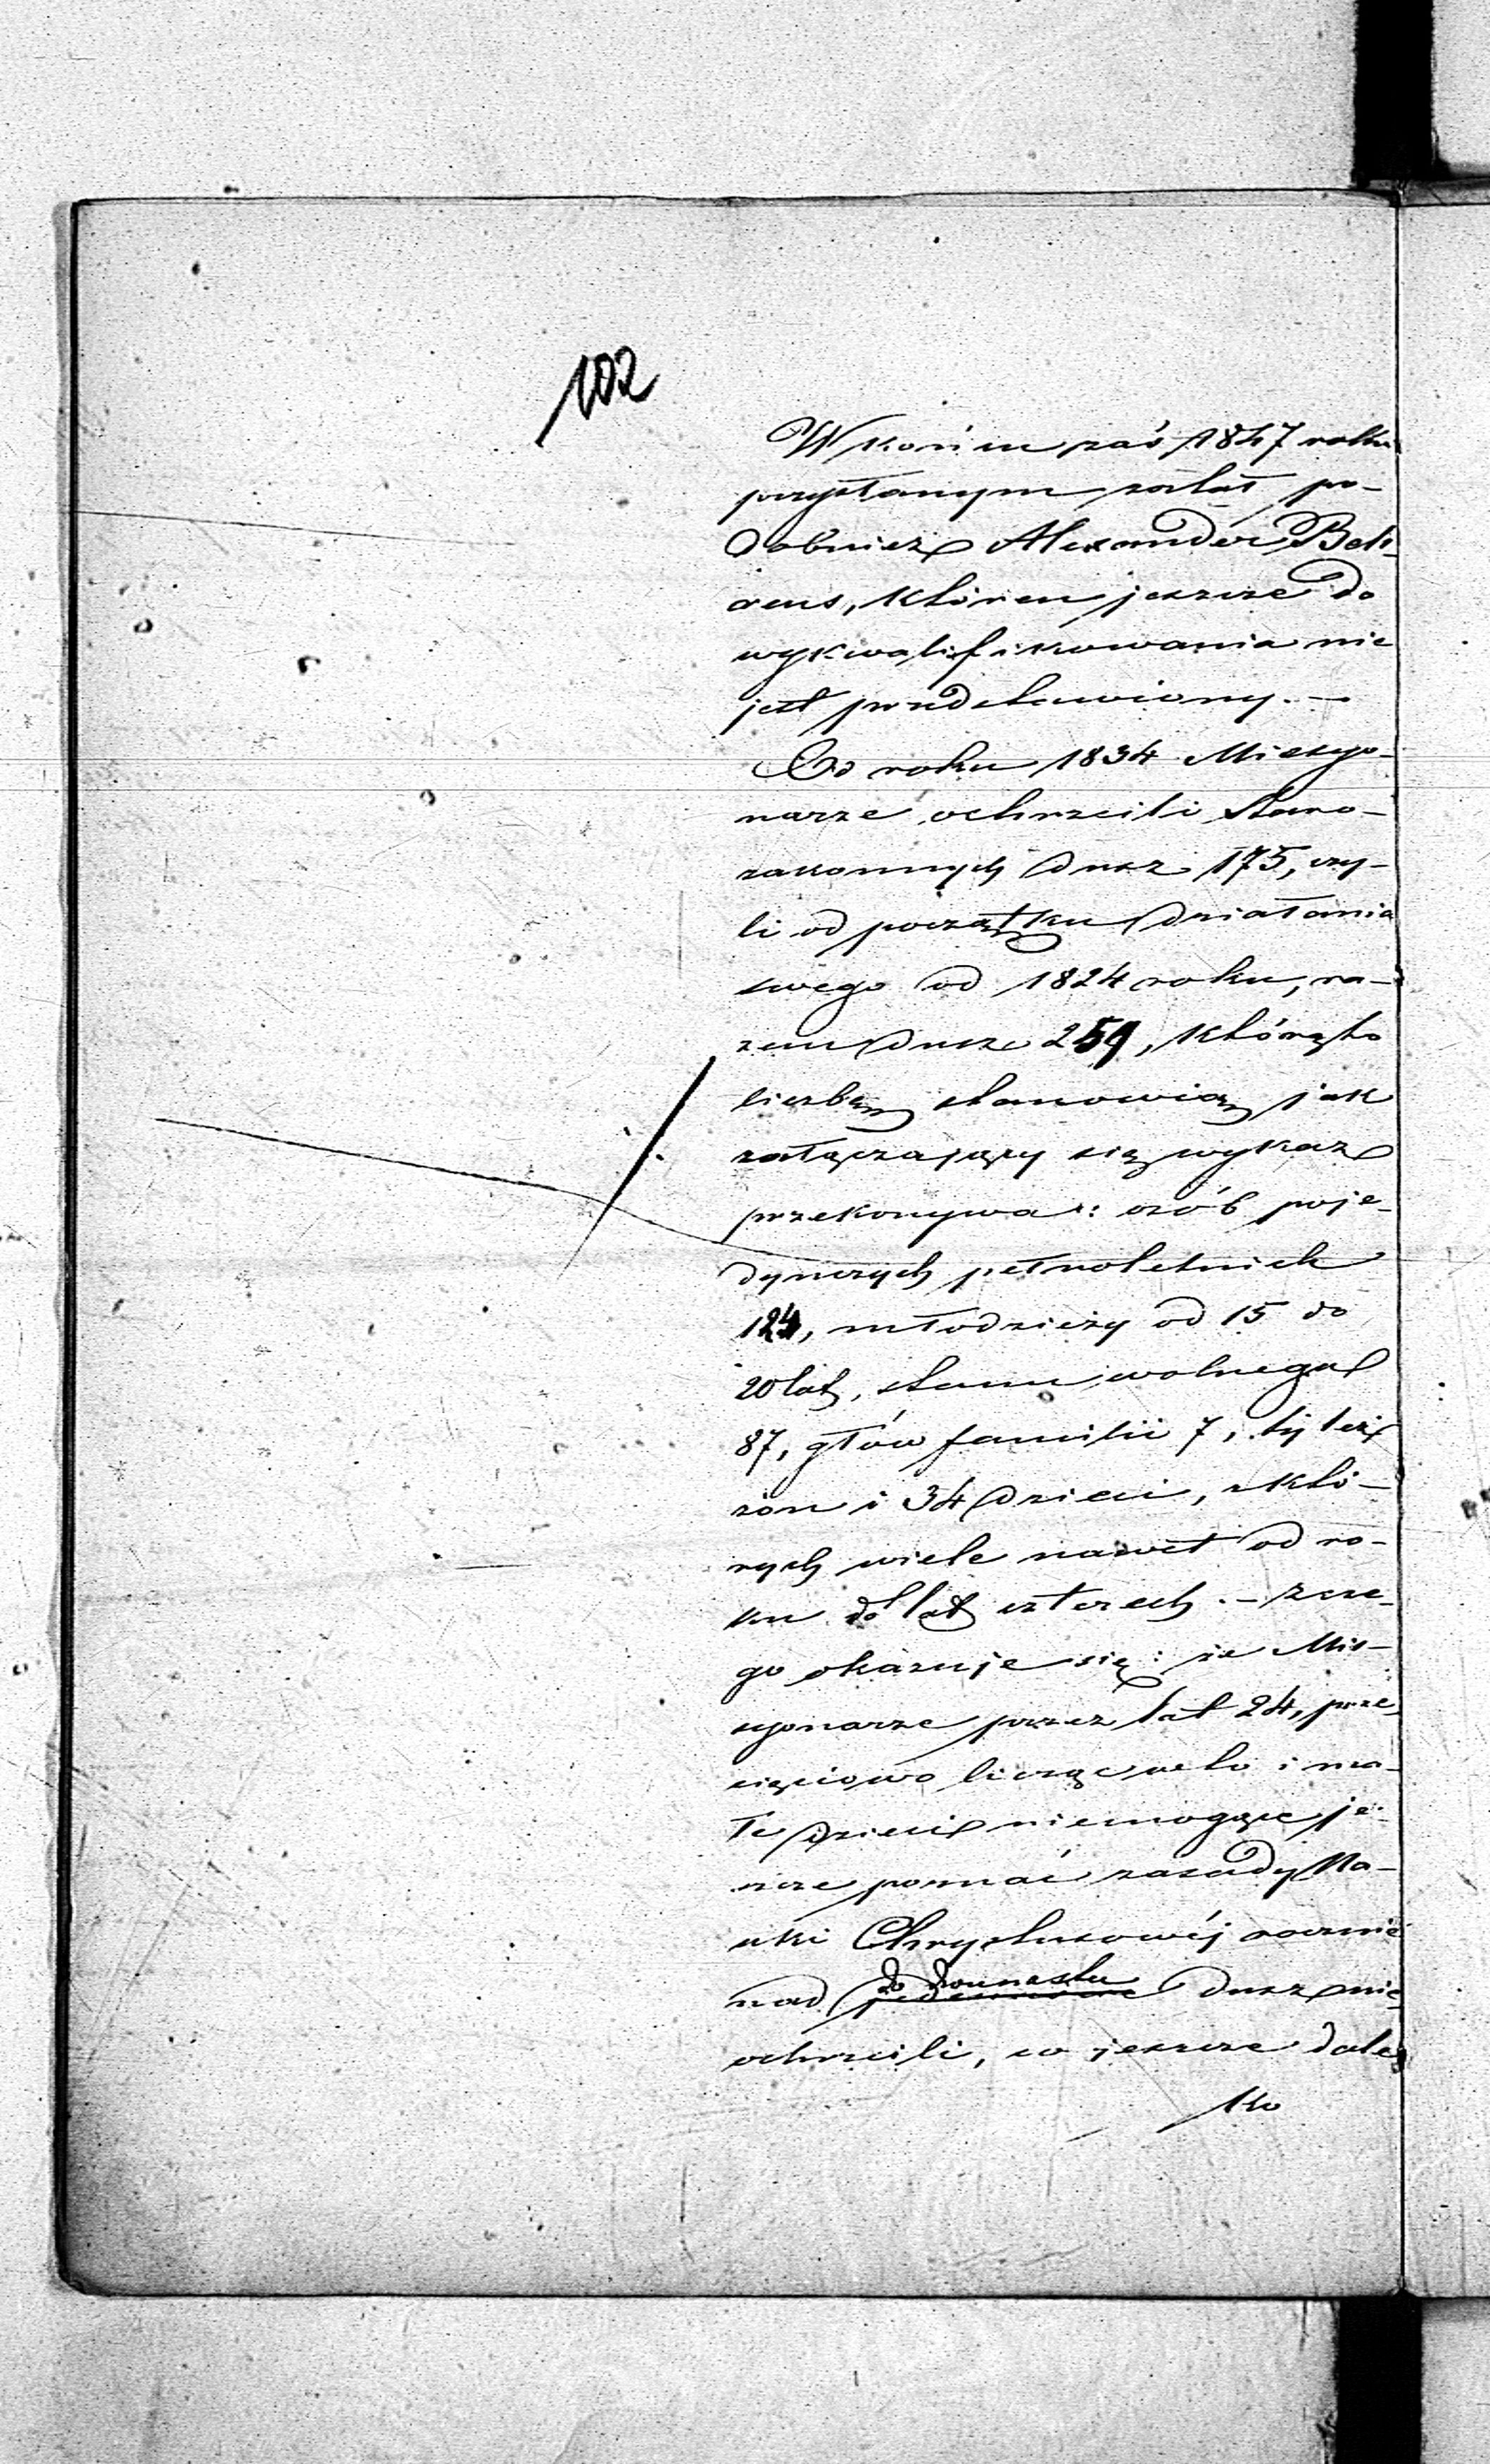 102
W końcu zaś 1847 roku
przysłanym został po-
dobnież Alexander Beh-
rens, któren jeszcze do
wykwalifikowania nie
jest przedstawiony. —
Od roku 1834 Missyo-
narze ochrzcili staro-
zakonnych dusz 175, czy-
li od początku działania
swego od 1824 roku, ra-
zem dusz 259, którąto
liczbę stanowią jak
załączający się wykaz
przekonywa: osób poje-
dynczych pełnoletnich
124, młodzieży od 15 do
20 lat, stanu wolnego
87, głów familii 7, tyleż
żon i 34 dzieci, z któ-
rych wiele nawet od ro-
ku do lat czterech. — Z cze-
go okazuje się: że Mis-
syonarze przez lat 24, prze-
cięciowo licząc i ma-
łe dzieci niemogące je-
szcze poznać zasady Na-
uki Chrystusowéj rocznie
do dwunastu
nad dusz nie
ochrzcili, co jeszcze dale-
ko